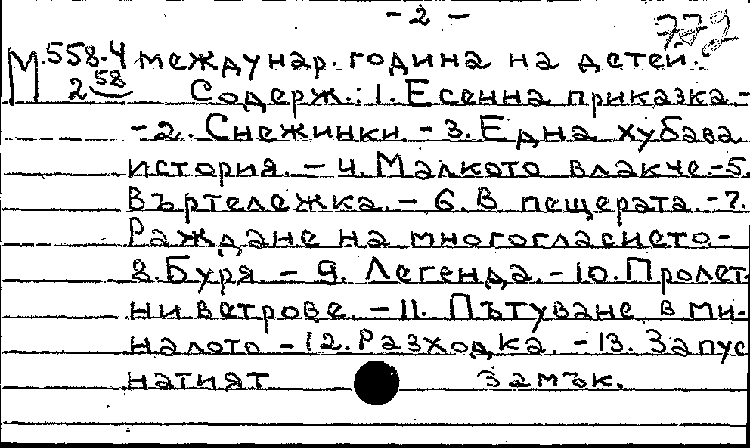 - 2 -
779
М 558.4 междунар. година на детей.
2 58 Содерж.: 1. Есенна приказка -
- 2. Снежинки. - 3. Една хубава
история. - 4. Малкото влакче. - 5.
Въртележка. - 6. В пещерата. - 7.
Раждане на многогласието -
8. Буря - 9. Легенда. - 10. Пролет
ни ветрове. - 11. Пътуване в ми-
налото - 12. Разходка. - 13. Запус
натият замък.